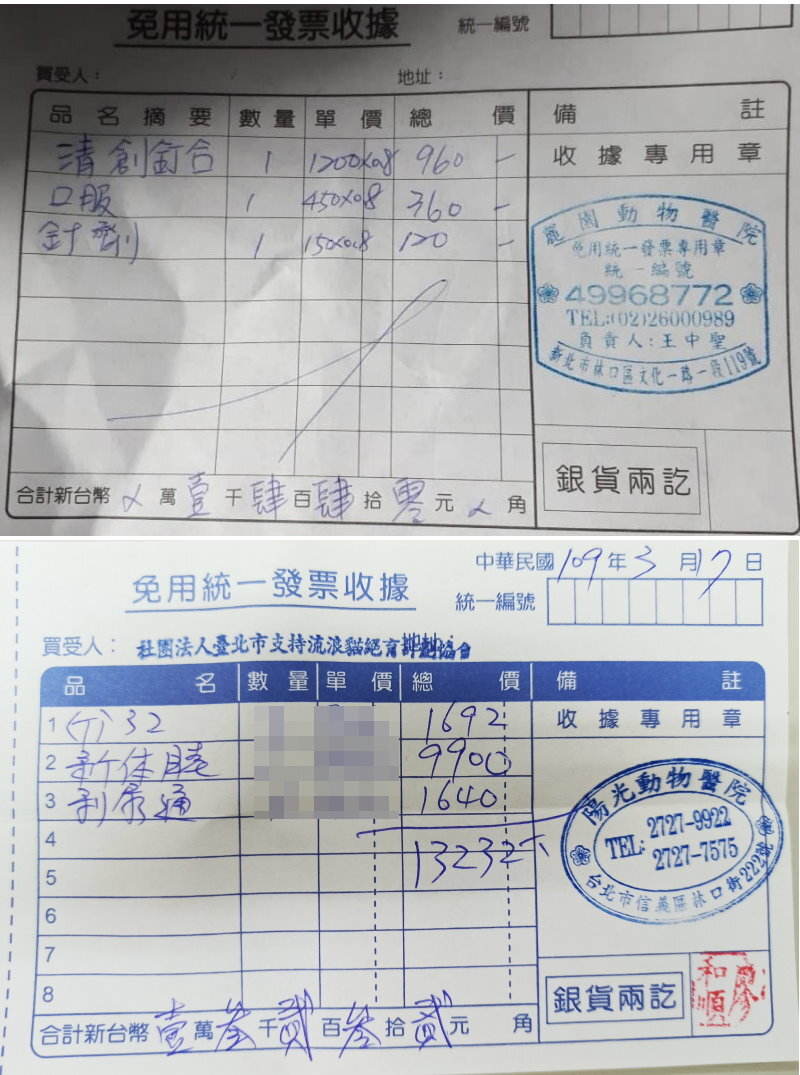 免用統一發票收據
統一編號
買受人：
地址：
品名摘要 數量 單價 總價 備註
清創釘合 1 1200x0.8 960 -
收據專用章
口服 1 450x0.8 360 -
針劑 1 150x0.8 120 -
麗園動物醫院
免用統一發票專用章
統一編號
49968772
TEL:(02)26000989
負責人:王中聖
新北市林口區文化一路一段119號
銀貨兩訖
合計新台幣 萬壹千肆百肆拾零元 角
中華民國109年3月17日
免用統一發票收據
統一編號
買受人： 社團法人臺北市支持流浪貓絕育計劃協會
品名 數量 單價 總價 備註
1 (竹)32 1692
收據專用章
2 新体睦 9900
3 利尿通 1640
4
13232
5
6
7
8
陽光動物醫院
TEL: 2727-9922
2727-7575
台北市信義區林口街222號
銀貨兩訖
合計新台幣壹萬叁千貳百叁拾貳元 角